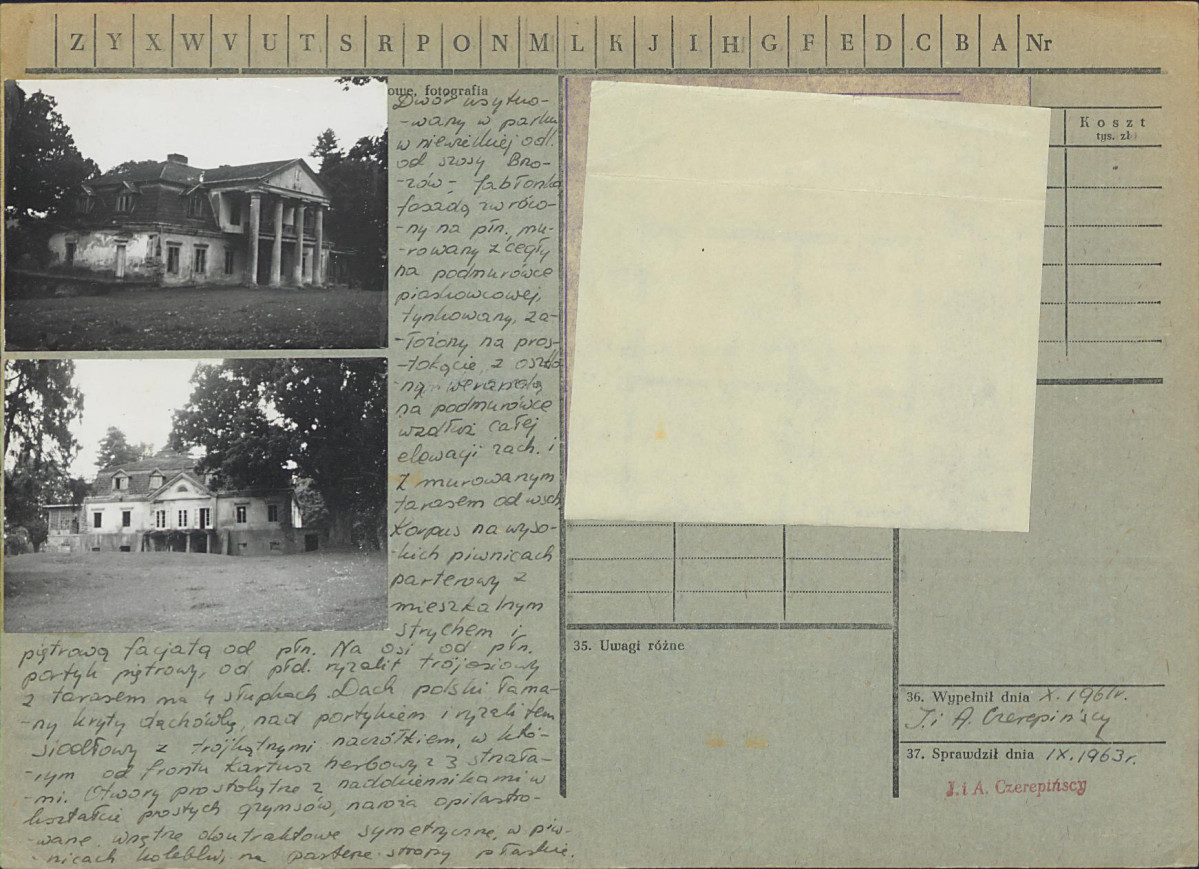 Z Y X W V U T S R P O N M L K J I H G F E D C B A Nr
owe, fotografia
Dwór usytuo-
-wany w parku
w niewielkiej odl.
od szosy Brzo-
-zów - Jabłonka
fasadą zwróco-
-ny na płn., mu-
-rowany z cegły
na podmurówce
piaskowcowej,
tynkowany, za-
-łożony na pros-
-tokącie, z oszklo
-ną werandą
na podmurówce
wzdłuż całej
elewacji zach. i
z murowanym
tarasem od wsch.
Korpus na wyso-
-kich piwnicach
parterowy z
mieszkalnym
strychem i
piętrową facjatą od płn. Na osi od płn.
portyk piętrowy, od płd. ryzalit trójosiowy
z tarasem na 4 słupkach. Dach polski łama-
-ny kryty dachówką, nad portykiem i ryzalitem
siodłowy z trójkątnymi naczółkiem, w któ-
-rym od frontu kartusz herbowy z 3 strzała-
-mi. Otwory prostokątne z naddziennikami w
kształcie prostych gzymsów, naroża opilastro-
-wane, wnętrze dwutraktowe symetryczne, w piw-
-nicach kolebki, na parterze stropy płaskie.
Koszt
tys. zł
35. Uwagi różne
36. Wypełnił dnia X. 1961r.
J. i A. Czerepińscy
37. Sprawdził dnia IX. 1963r.
J. i A. Czerepińscy